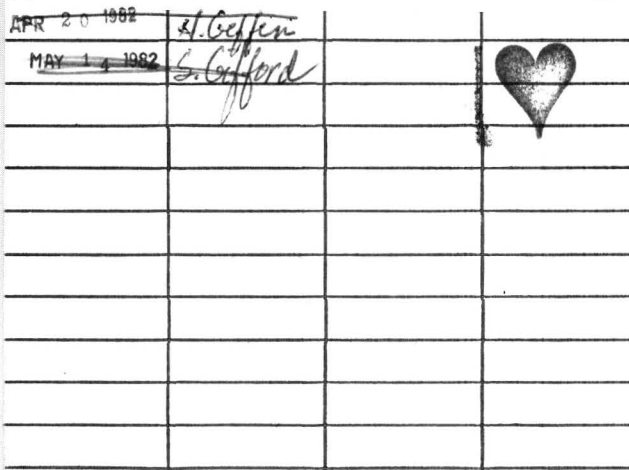 APR 20 1982 H. Geffen
MAY 14 1982 S. Gifford